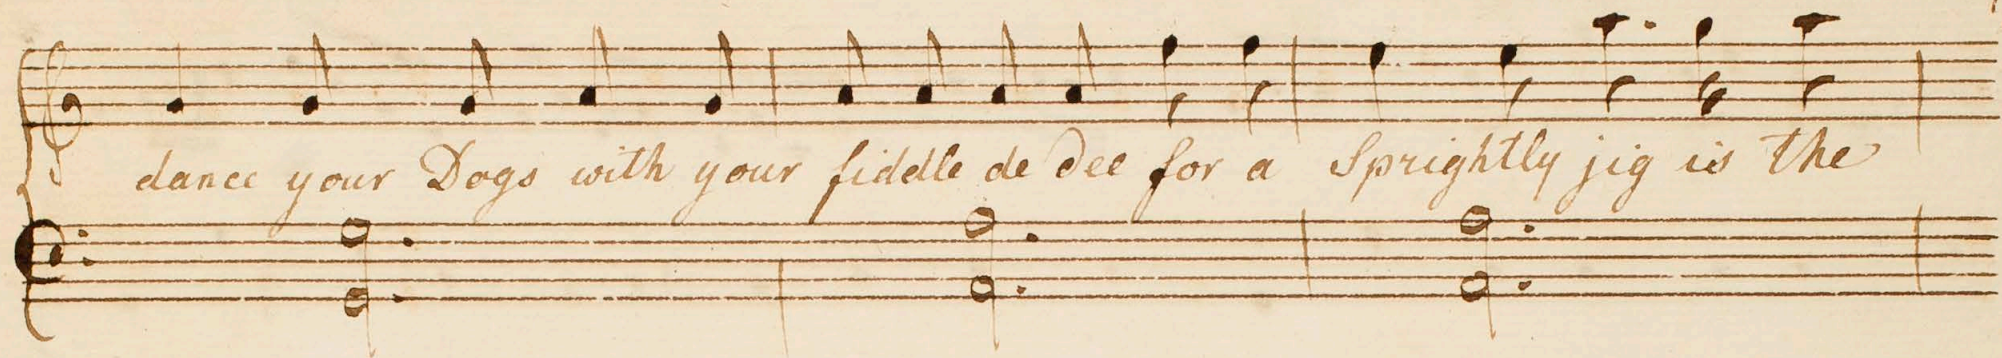 dance your Dogs with your fiddle de dee for a Sprightly jig is the